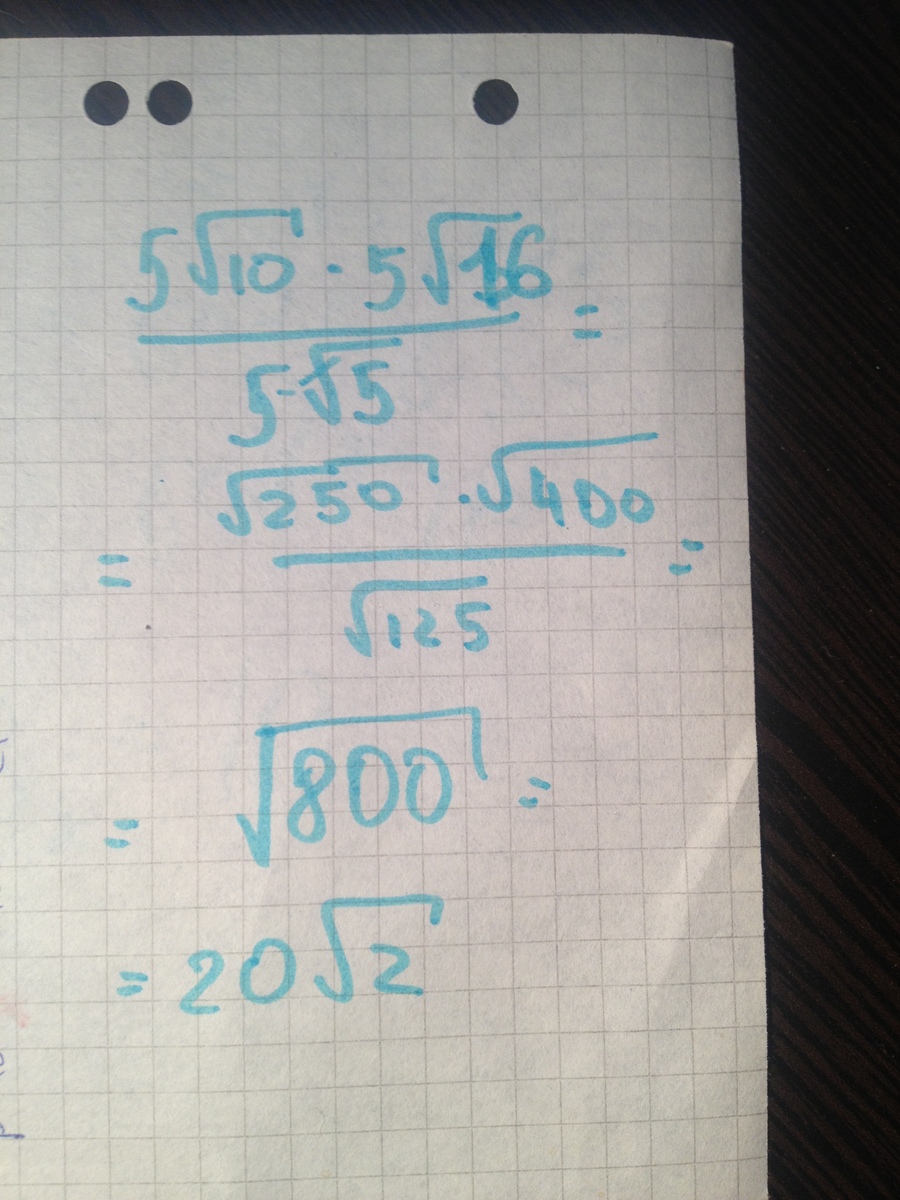 5√10 · 5√16
=
5√5
= √250 · √400 =
√125
= √800 =
= 20√2